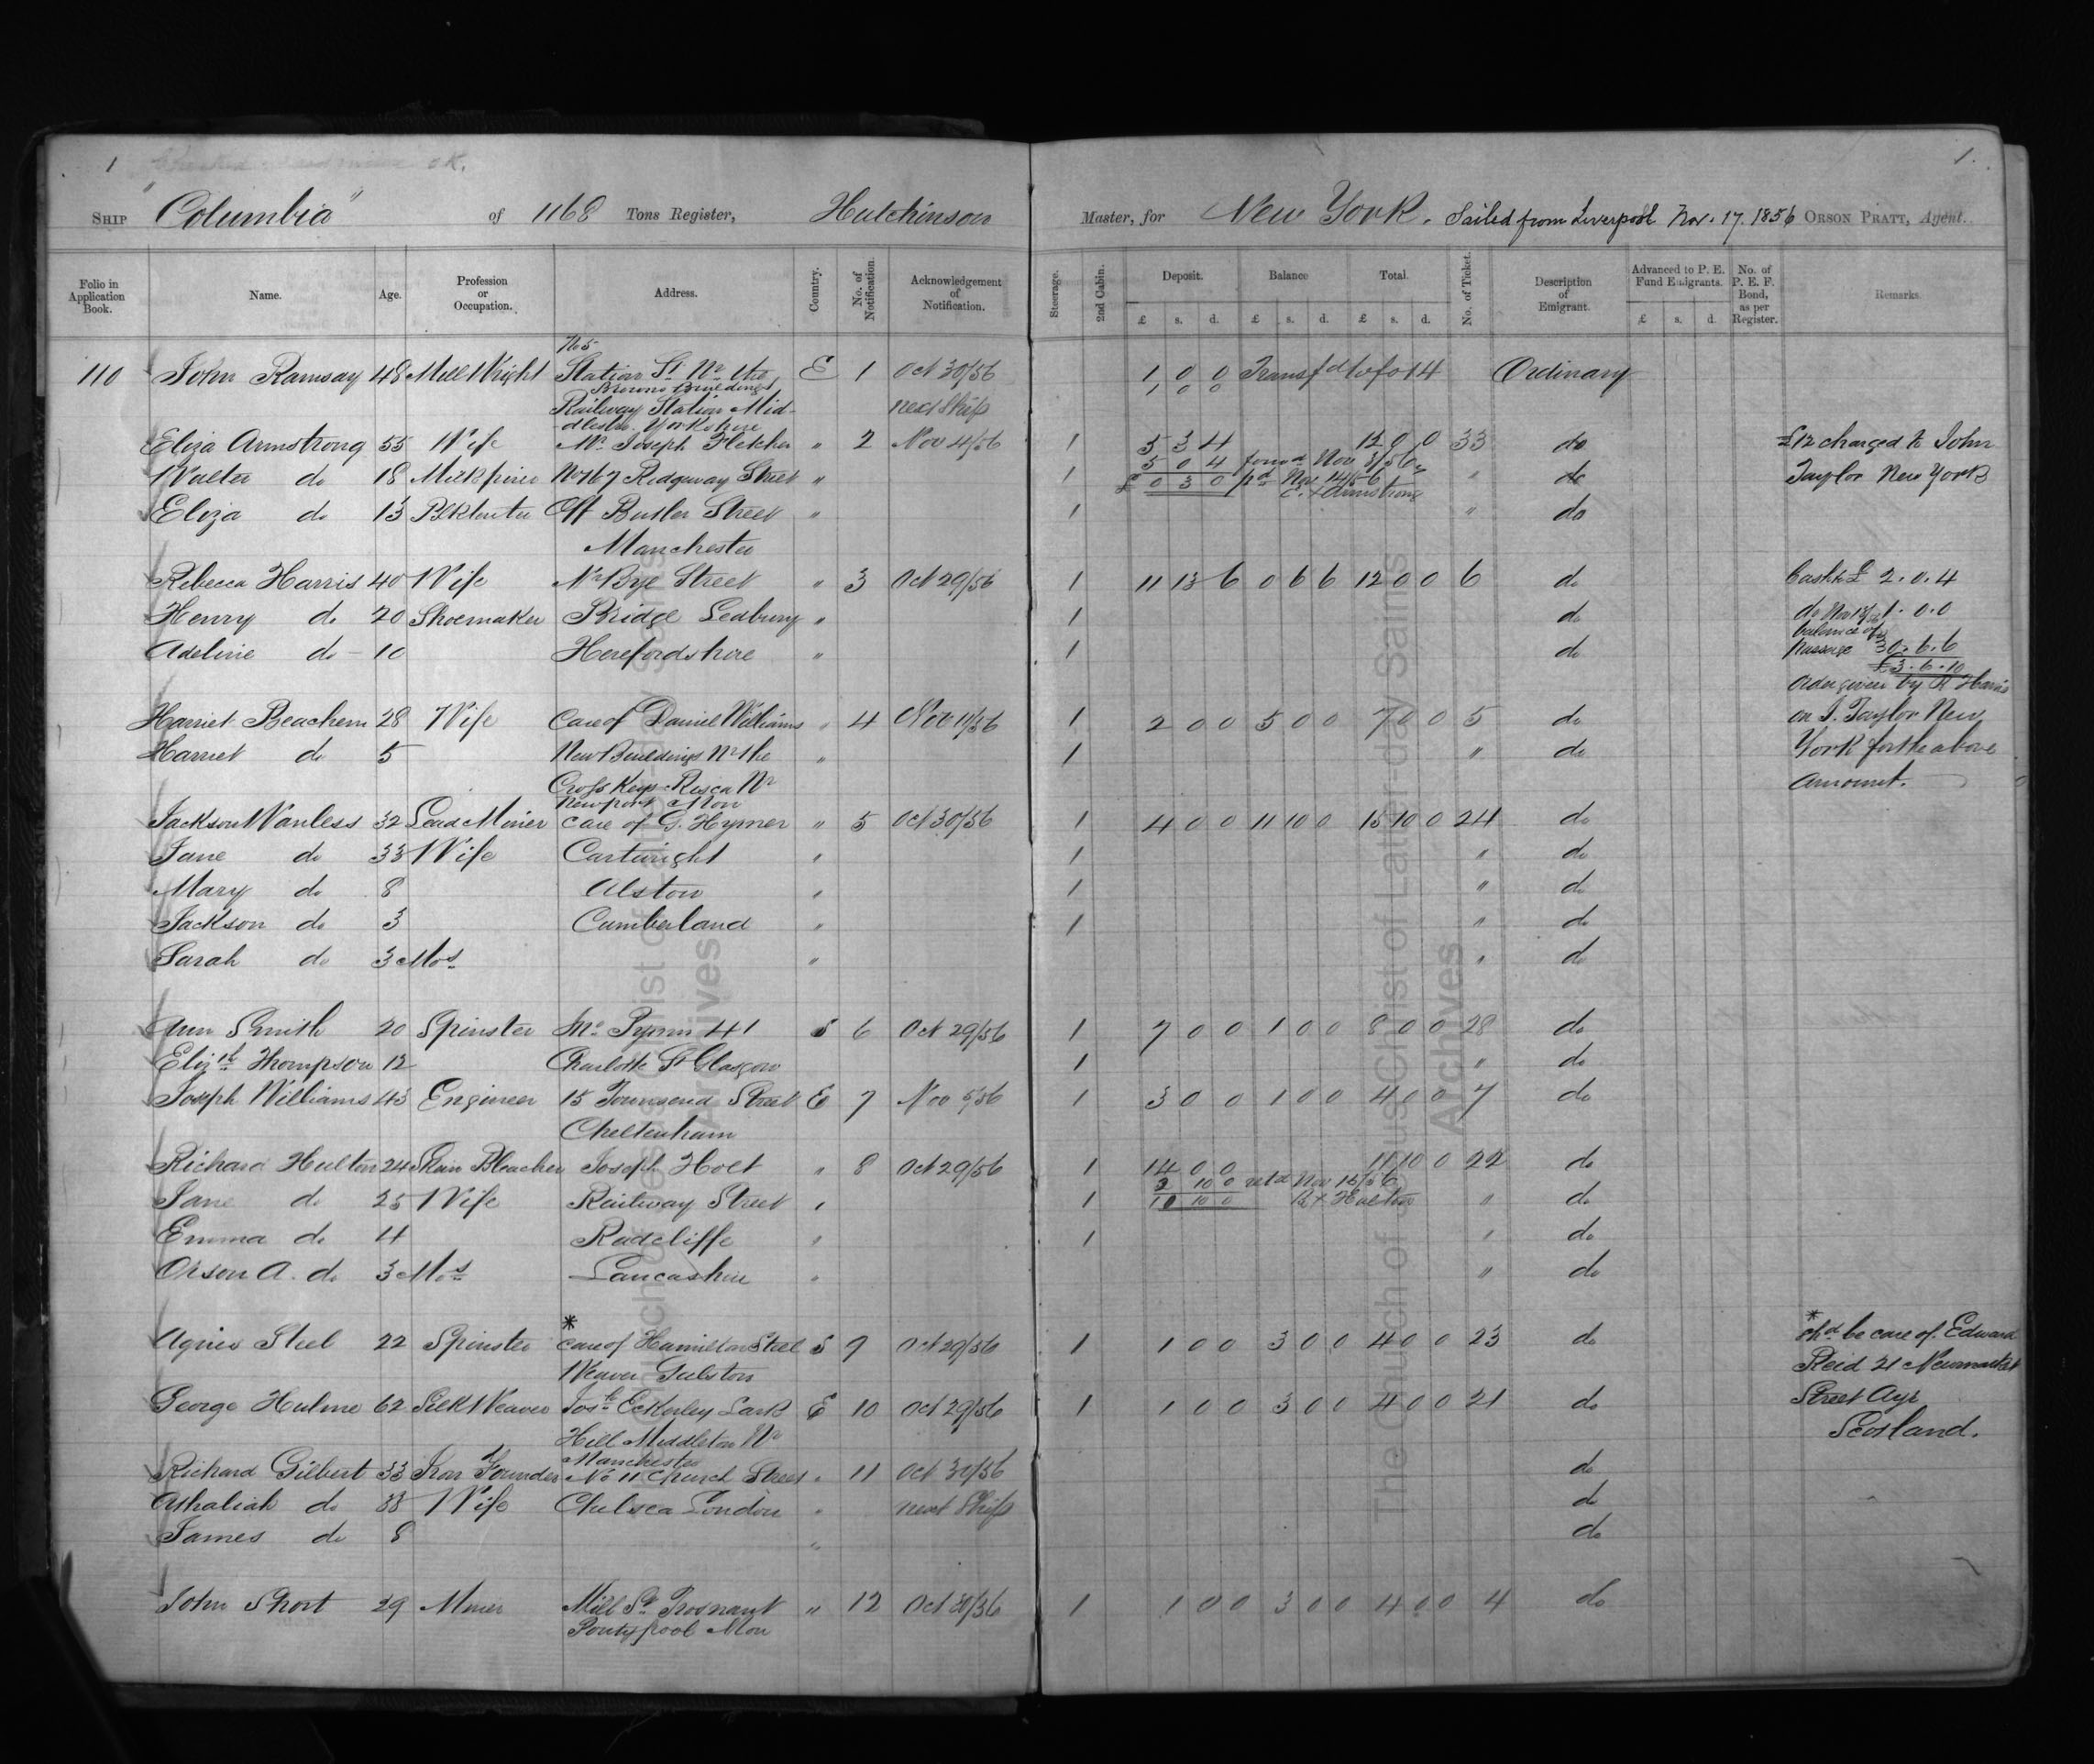 1 OK. 1.
Ship "Columbia" of 1168 Tons Register, Hutchinson Master, for New York. Sailed from Liverpool Nov. 17. 1856 Orson Pratt, Agent.
Folio in Application Book. Name. Age. Profession or Occupation. Address. Country. No. of Notification. Acknowledgement of Notification. Steerage. 2nd Cabin. Deposit. Balance Total. No. of Ticket. Description of Emigrant. Advanced to P. E. Fund Emigrants. No. of P. E. F. Bond, as per Register. Remarks.
£ s. d. £ s. d. £ s. d. £ s. d.
No 5
110 John Ramsay 48 Mill Wright Station St Nr the E 1 Oct 30/56 1 0 0 Transfd to fo 14 Ordinary
Browns Buildings 1 0 0
Railway Station Mid- next Ship
dlesbro. Yorkshire
Eliza Armstrong 55 Wife Mr Joseph Fletcher " 2 Nov 4/56 1 5 3 4 12 0 0 33 do £12 charged to John
5 0 4 forwd Nov 8/56
Walter do 18 No 167 Ridgway Street " 1 £ 0 3 0 pd Nov 14/56 " do Taylor New York
E. X Armstrong
Eliza do 13 Off Butler Street " 1 " do
Manchester
Rebecca Harris 40 Wife Nr Bye Street " 3 Oct 29/56 1 11 13 6 0 6 6 12 0 0 6 do Cash £ 2. 0. 4
Henry do 20 Shoemaker Bridge Ledbury " 1 do do Nov 1. 0. 0
balance of
Adeline do 10 Herefordshire " 1 do Passage 0. 6. 6
£3. 6. 10
Order given by R Harris
Harriet Beachem 28 Wife Care of Daniel Williams " 4 Nov 11/56 1 2 0 0 5 0 0 7 0 0 5 do on J. Taylor New
Harriet do 5 New Buildings Nr the " 1 " do York for the above
Cross Keys Risca Nr Amount.
Newport Mon
Jackson Wanless 32 Lead Miner Care of G. Hymer " 5 Oct 30/56 1 4 0 0 11 10 0 15 10 0 24 do
Jane do 33 Wife Cartwright " 1 " do
Mary do 8 Alston " 1 " do
Jackson do 3 Cumberland " 1 " do
Sarah do 3 Mos " " do
Ann Smith 20 Spinster Mr Pymm 41 S 6 Oct 29/56 1 7 0 0 1 0 0 8 0 0 28 do
Elizth Thompson 12 Charlotte St Glasgow 1 " do
Joseph Williams 43 Engineer 15 Townsend Street E 7 Nov 5/56 1 3 0 0 1 0 0 4 0 0 7 do
Cheltenham
Richard Hulton 24 Skein Bleacher Joseph Holt " 8 Oct 29/56 1 14 0 0 11 10 0 22 do
2 10 0 retd Nov 15/56
Jane do 25 Wife Railway Street " 1 11 10 0 R X Hulton " do
Emma do 4 Radcliffe " 1 " do
Orson A. do 3 Mos Lancashire " " do
* *
Agnes Steel 22 Spinster care of Hamilton Steel S 9 Oct 29/56 1 1 0 0 3 0 0 4 0 0 23 do shd be care of Edward
Weaver Gulston Reid 21 Newmarket
George Hulme 62 Silk Weaver Josh Eckerley Lark E 10 Oct 29/56 1 1 0 0 3 0 0 4 0 0 21 do Street Ayr
Hill Middleton Nr Scotland.
Manchester
Richard Gilbert 33 Iron Founder No 11 Church Street " 11 Oct 30/56 do
Athaliah do 33 Wife Chelsea London " next Ship do
James do 8 " do
John Short 29 Miner Mill St Trosnant " 12 Oct 30/56 1 1 0 0 3 0 0 4 0 0 4 do
Pontypool Mon
The Church of Jesus Christ of Latter-day Saints
Archives